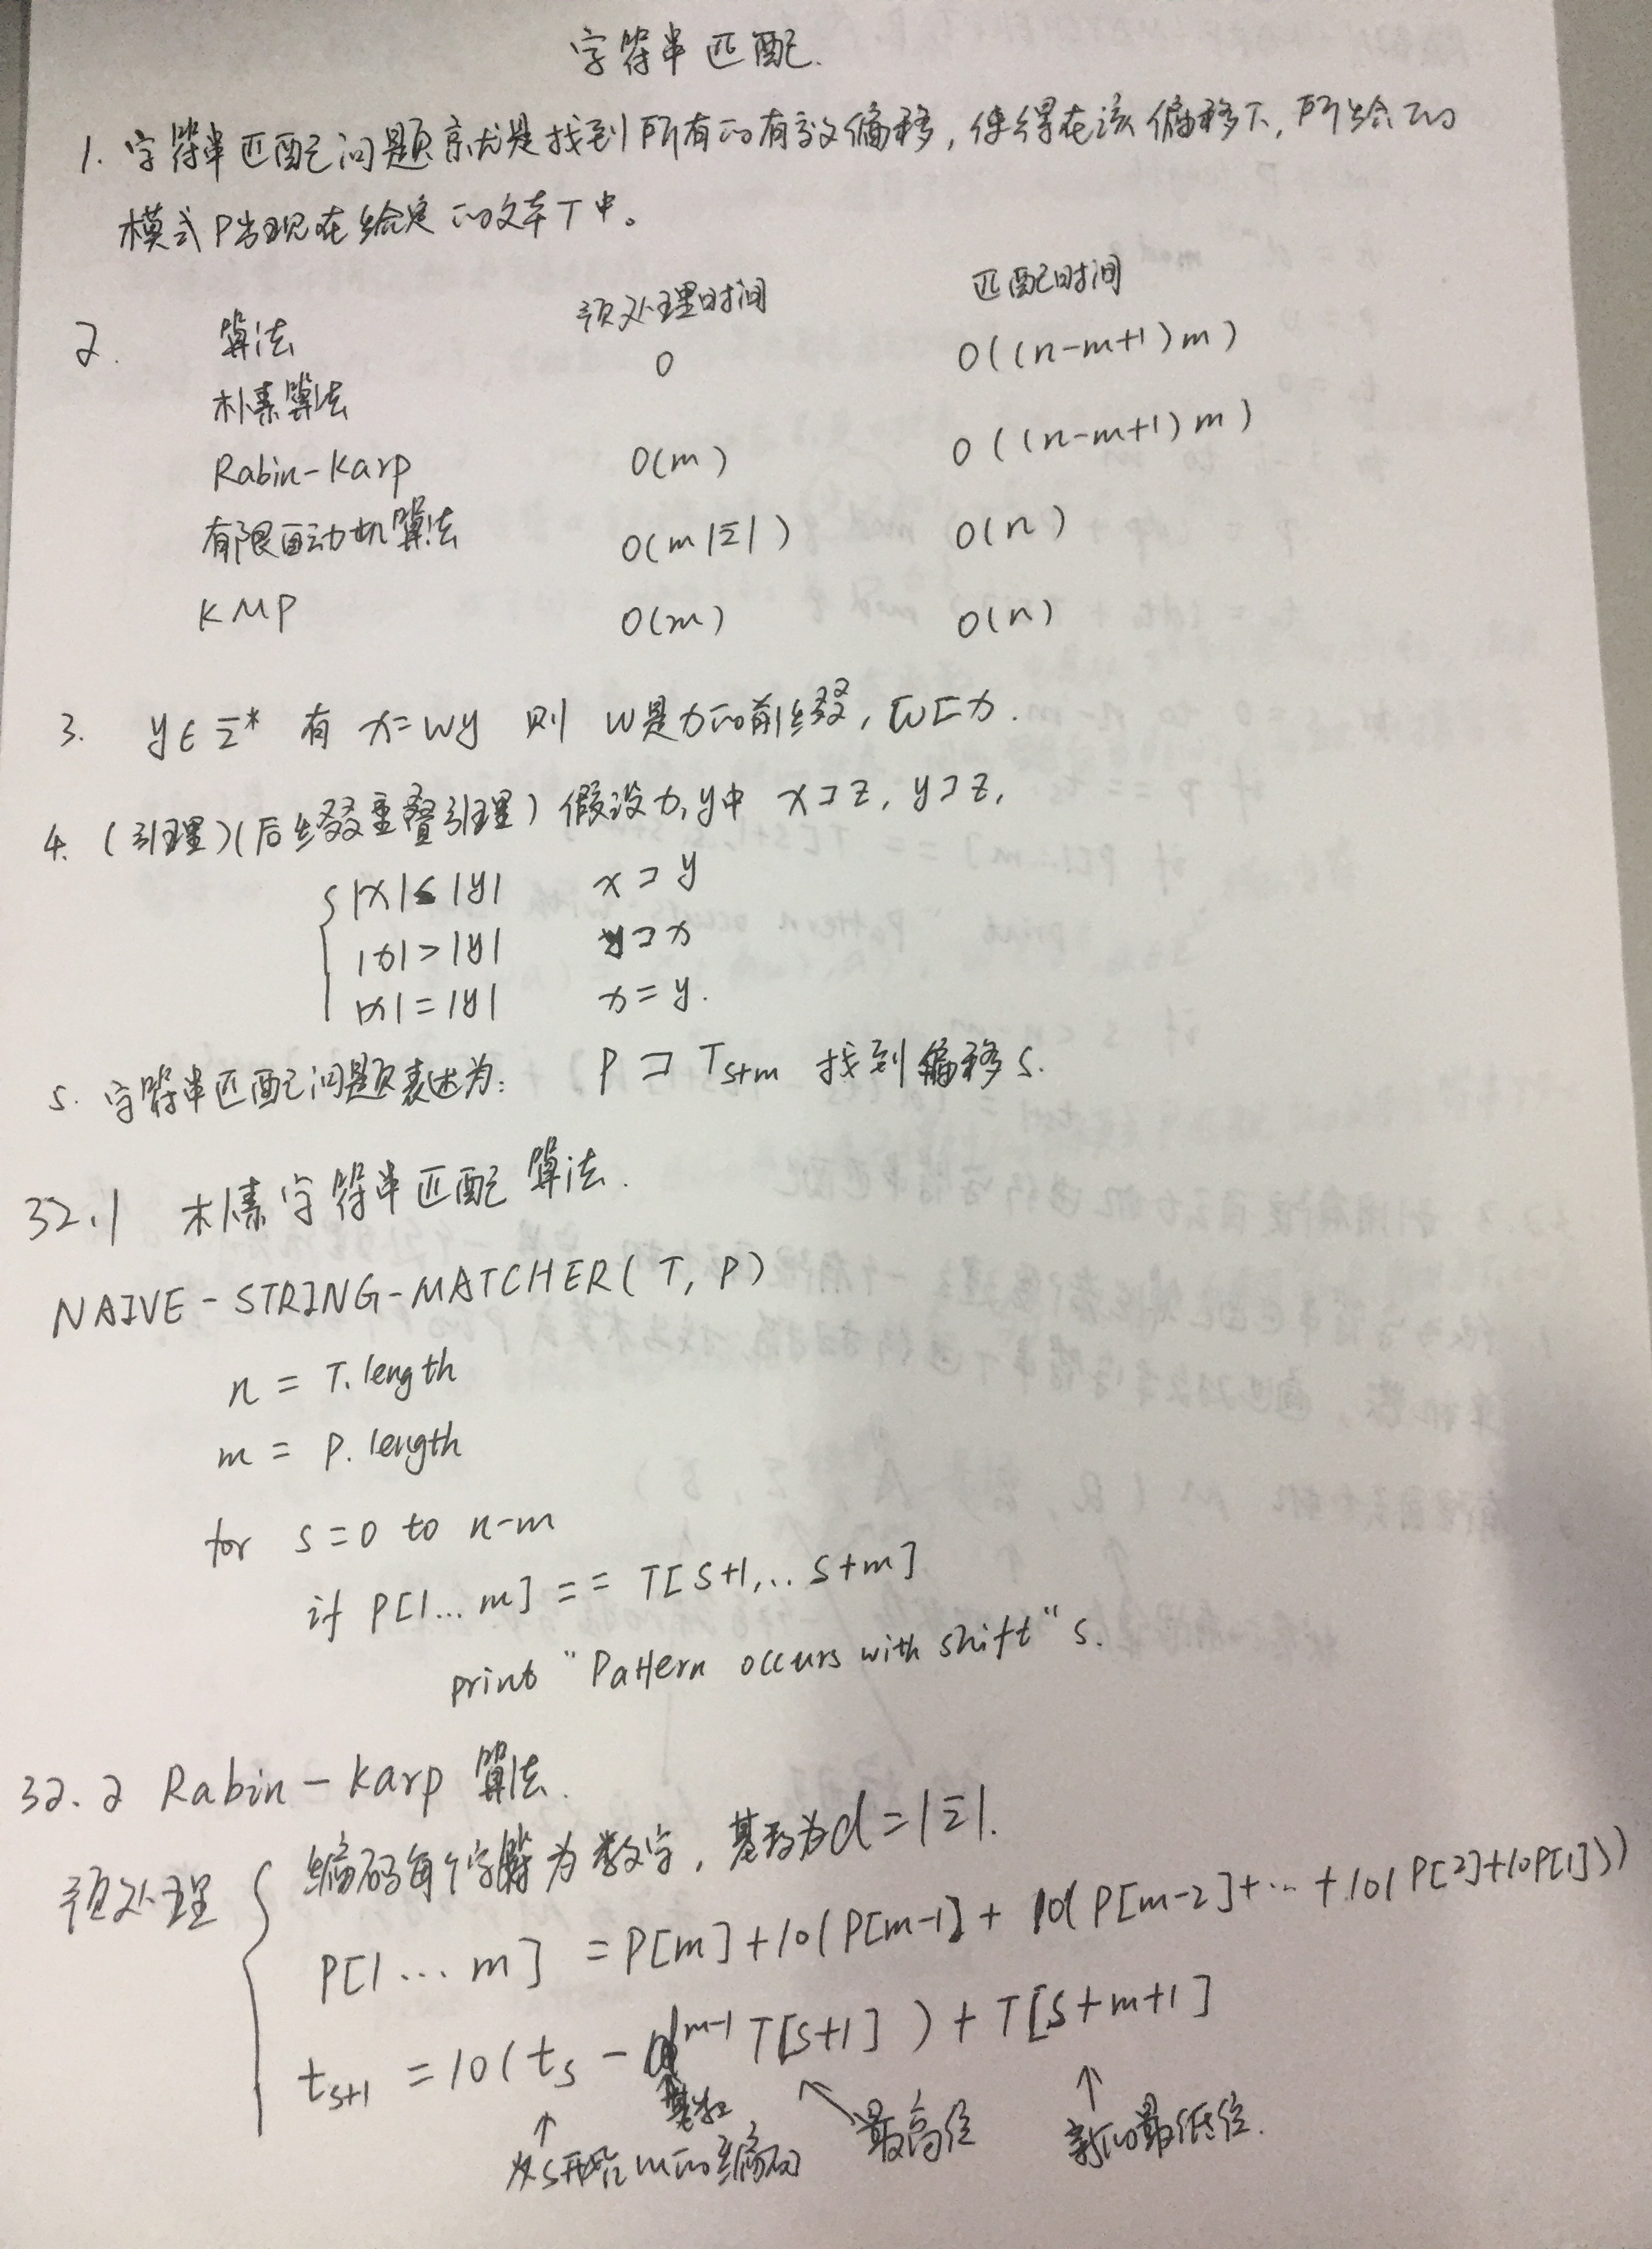 字符串匹配.
1. 字符串匹配问题就是找到所有的有效偏移,使得在该偏移下,所给的
模式P出现在给定的文本T中。
2. 算法 预处理时间 匹配时间
朴素算法 0 O((n-m+1)m)
Rabin-Karp O(m) O((n-m+1)m)
有限自动机算法 O(m|Σ|) O(n)
KMP O(m) O(n)
3. y∈Σ* 有 x=wy 则 w是x的前缀, w⊏x.
4. (引理)(后缀重叠引理) 假设x,y中 x⊐z, y⊐z,
|x|≤|y| x⊐y
|x|>|y| y⊐x
|x|=|y| x=y.
5. 字符串匹配问题表述为: P⊐Ts+m 找到偏移s.
32.1 朴素字符串匹配算法.
NAIVE-STRING-MATCHER(T, P)
n = T.length
m = P.length
for s=0 to n-m
if P[1...m] == T[s+1,..s+m]
print "Pattern occurs with shift" s.
32.2 Rabin-Karp 算法.
预处理 { 编码每个字符为数字, 基数为d=|Σ|.
P[1...m] = P[m]+10(P[m-1]+10(P[m-2]+...+10(P[2]+10P[1]))
ts+1 = 10(ts - d^m-1 T[s+1]) + T[s+m+1]
↑ 从s开始m的编码 ↑ 基数 ↖ 最高位 ↑ 新的最低位.